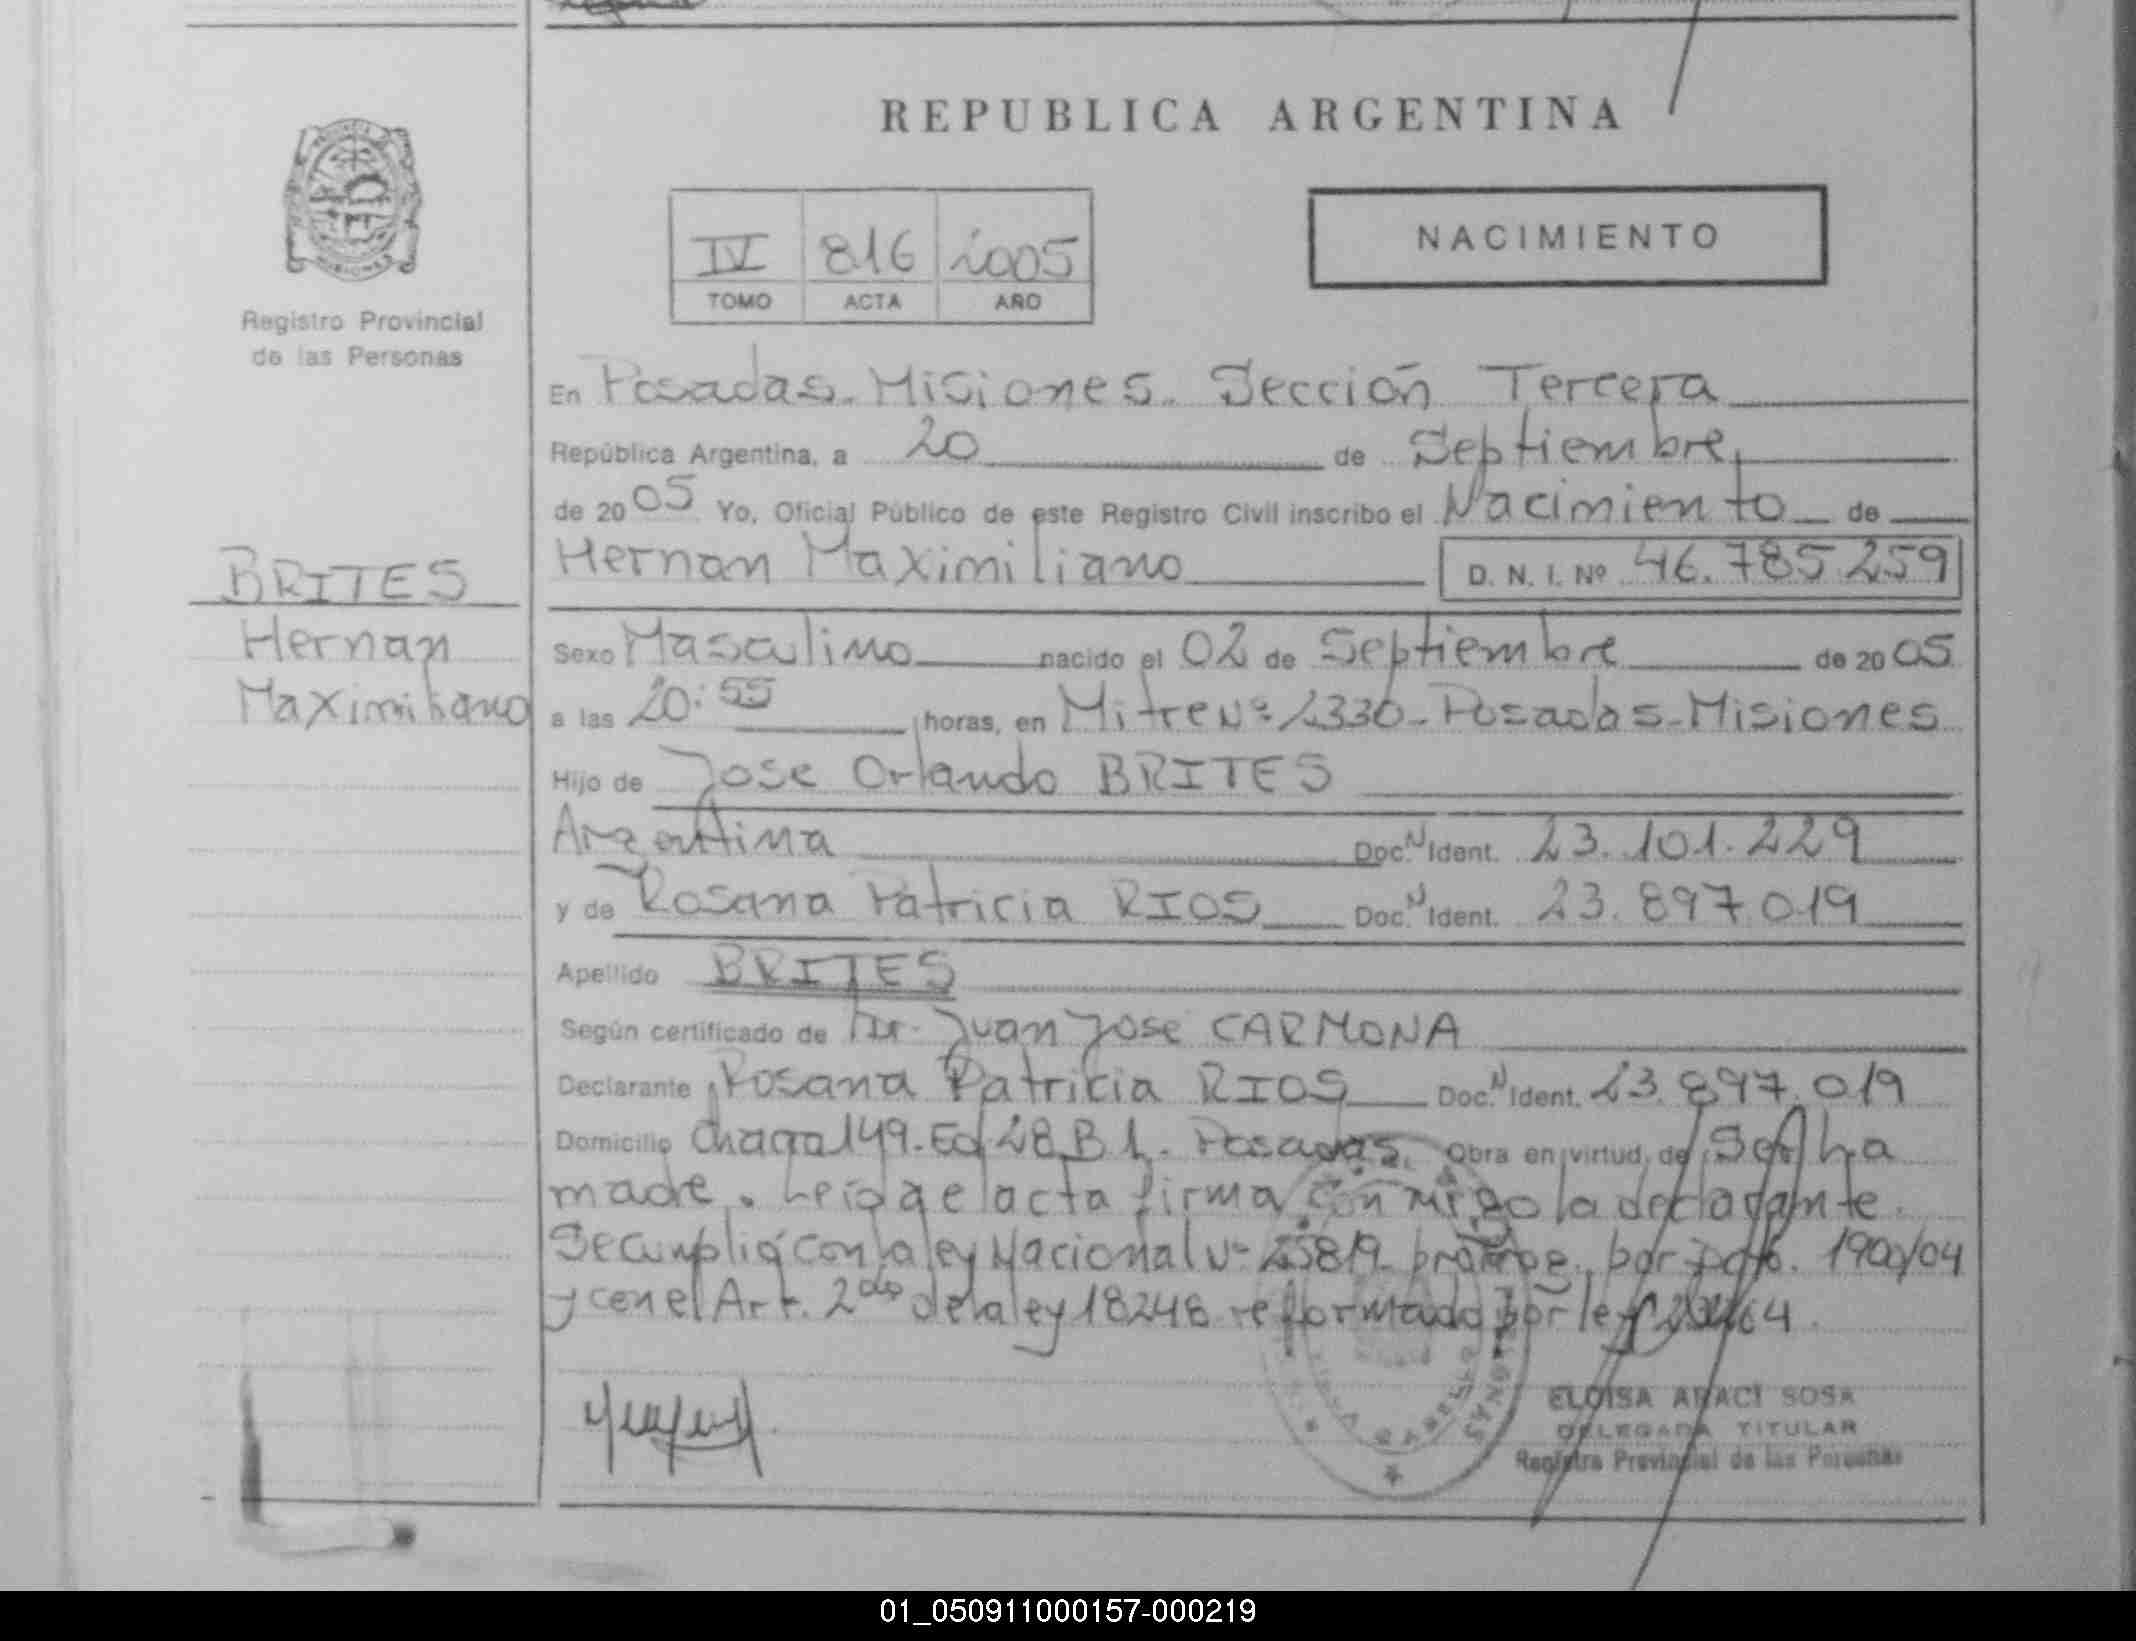 REPUBLICA ARGENTINA
IV 816 2005
TOMO ACTA AÑO
NACIMIENTO
Registro Provincial
de las Personas
BRITES
Hernan
Maximiliano
En Posadas - Misiones - Sección Tercera
República Argentina, a 20 de Septiembre
de 2005 Yo, Oficial Público de este Registro Civil inscribo el Nacimiento de
Hernan Maximiliano D. N. I. Nº 46.785.259
Sexo Masculino nacido el 02 de Septiembre de 2005
a las 20:55 horas, en Mitre Nº 2330 - Posadas - Misiones
Hijo de Jose Orlando BRITES
Argentina Doc. N Ident. 23.101.229
y de Rosana Patricia RIOS Doc. N Ident. 23.897.019
Apellido BRITES
Según certificado de Dr. Juan Jose CARMONA
Declarante Rosana Patricia RIOS Doc. N Ident. 23.897.019
Domicilio Chacra 149 - Ed 28 B 1 - Posadas. Obra en virtud de Ser la
madre. Leida el acta firma conmigo la declarante.
Se cumplió con la ley Nacional Nº 25819 por 1900/04
y con el Art. 2do de la ley 18248 reformado por ley
ELOISA ARACI SOSA
DELEGADA TITULAR
Registro Provincial de las Personas
01_050911000157-000219